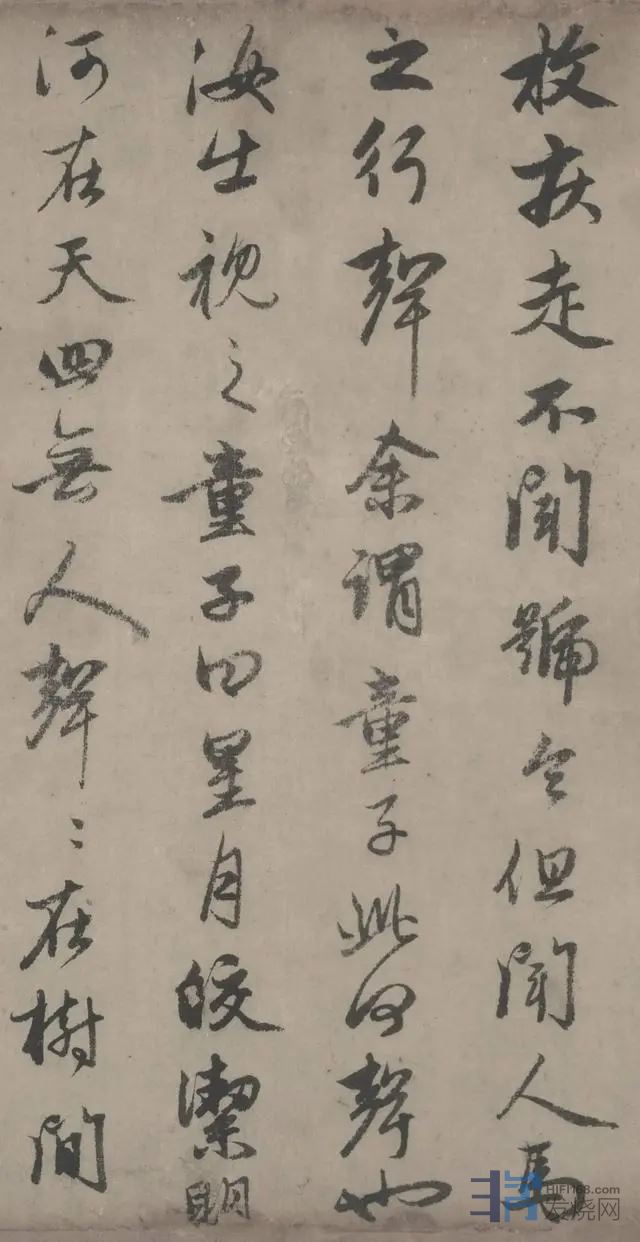 枚疾走不聞號令但聞人馬
之行聲余謂童子此何聲也
汝出視之童子曰星月皎潔明
河在天四無人聲〻在樹間
HIFI168.com
发烧网